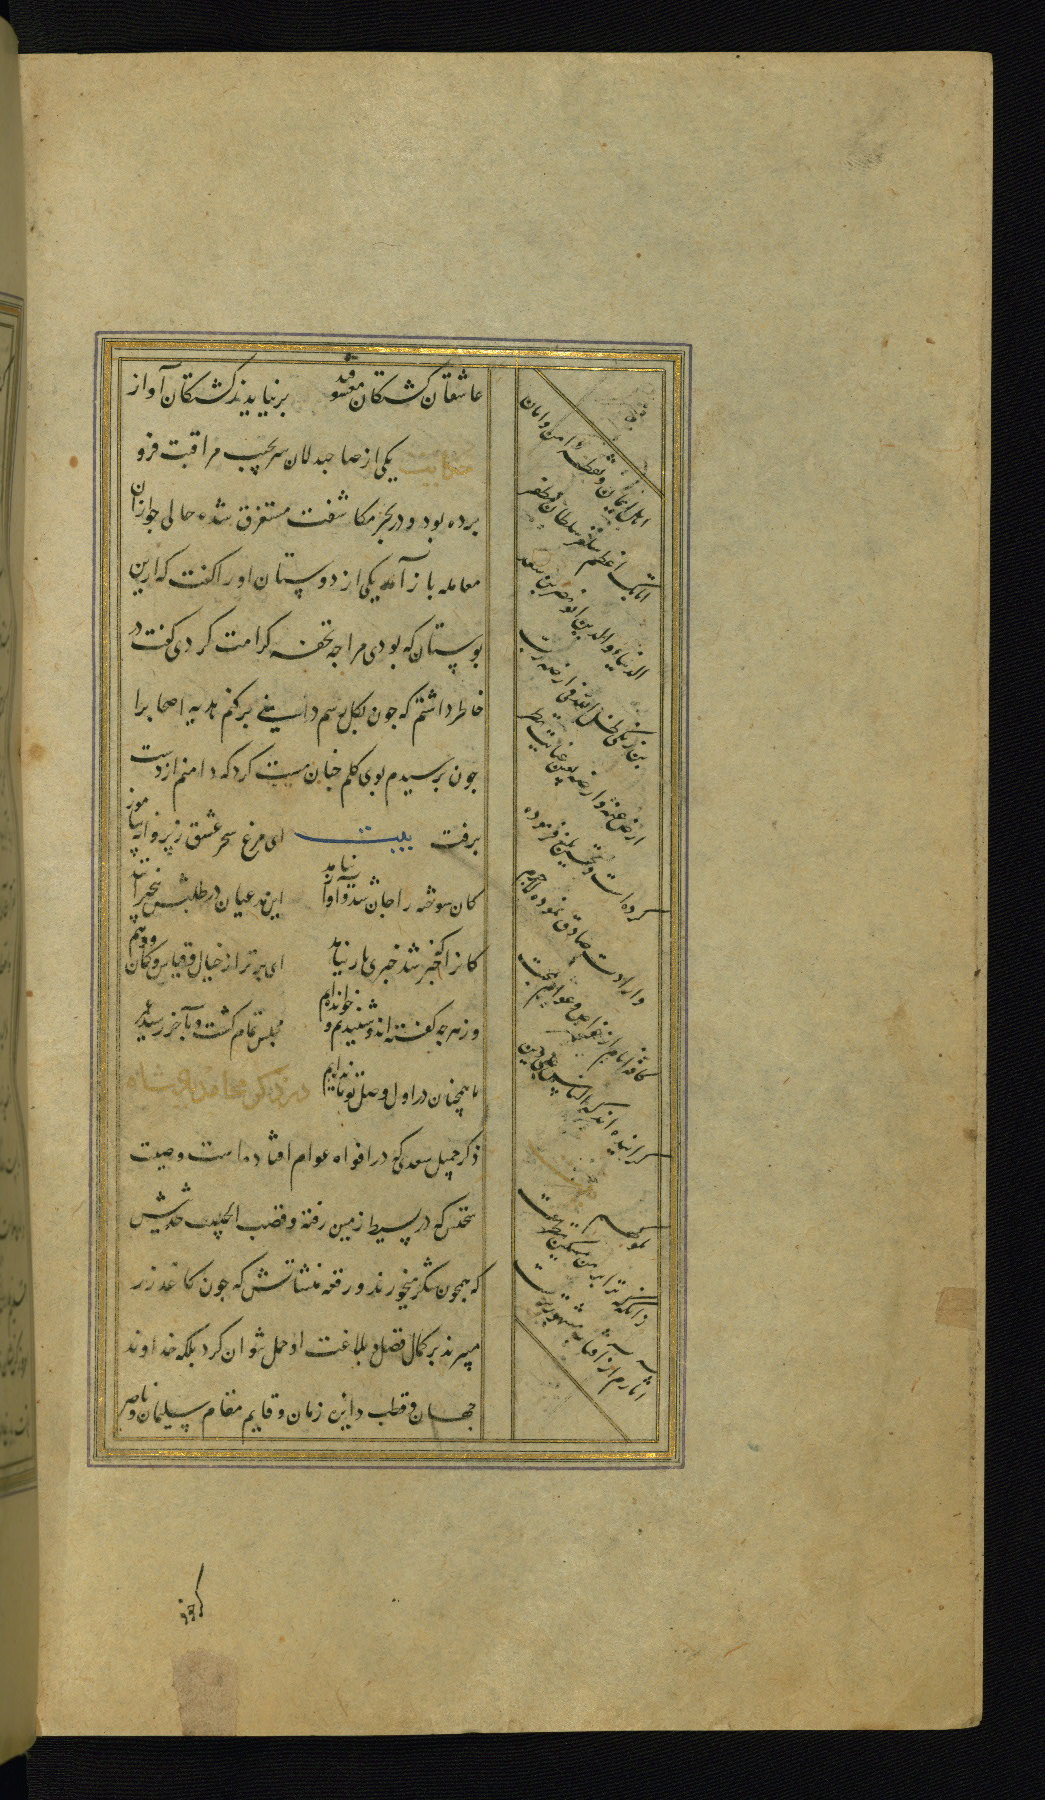 عاشقان کشتکان معشوقند برنیاید ز کشتکان آواز
حکایت یکی از صاحبدلان سر بجیب مراقبت فرو
برده بود و در بحر مکاشفت مستغرق شده حالی جو از ان
معامله باز آمد یکی از دوستان او را کفت که ازین
بوستان که بودی مرا جه تحفه کرامت کردی کفت در
خاطر داشتم که جون بکل برسم دامنی برکنم هدیه اصحابرا
جون برسیدم بوی کلم جنان مست کرد که دامنم از دست
برفت بیت ای مرغ سحر عشق ز پروانه بیاموز
کان سوخته را جان شد و آواز نیامد این مدعیان در طلبش بیخبرانند
کانرا که خبر شد خبری باز نیامد ای برتر از خیال و قیاس و کمان و وهم
وز هرجه کفته اند و شنیدیم و خوانده ایم مجلس تمام کشت و بآخر رسید عمر
ما همچنان در اول وصف تو مانده ایم در ذکر محامد پادشاه
ذکر جمیل سعدی که در افواه عوام افتاده است و صیت
سخنش که در بسیط زمین رفته و قصب الجیب حدیثش
که همچون شکر میخورند و رقعه منشاتش که جون کاغذ زر
میبرند بر کمال فضل و بلاغت او حمل نتوان کرد بلکه خداوند
جهان و قطب دایره زمان و قایم مقام سلیمان و ناصر
اهل ایمان و امن و امان
اتابک اعظم سلطان مظفر
الدنیا و الدین ابو نصر بن سعد
بن زنکی ظل الله فی ارضه رب
ارض عنه و ارضه بعین عنایت نظر
کرده است و تحسین بلیغ فرموده
و ارادت صادق نموده لاجرم
کافه انام از خواص و عوام بمحبت
کراینده اند که الناس علی دین
ملوکهم
زانکه که ترا بر من مسکین نظرست
آثارم از آفتاب مشهورترست